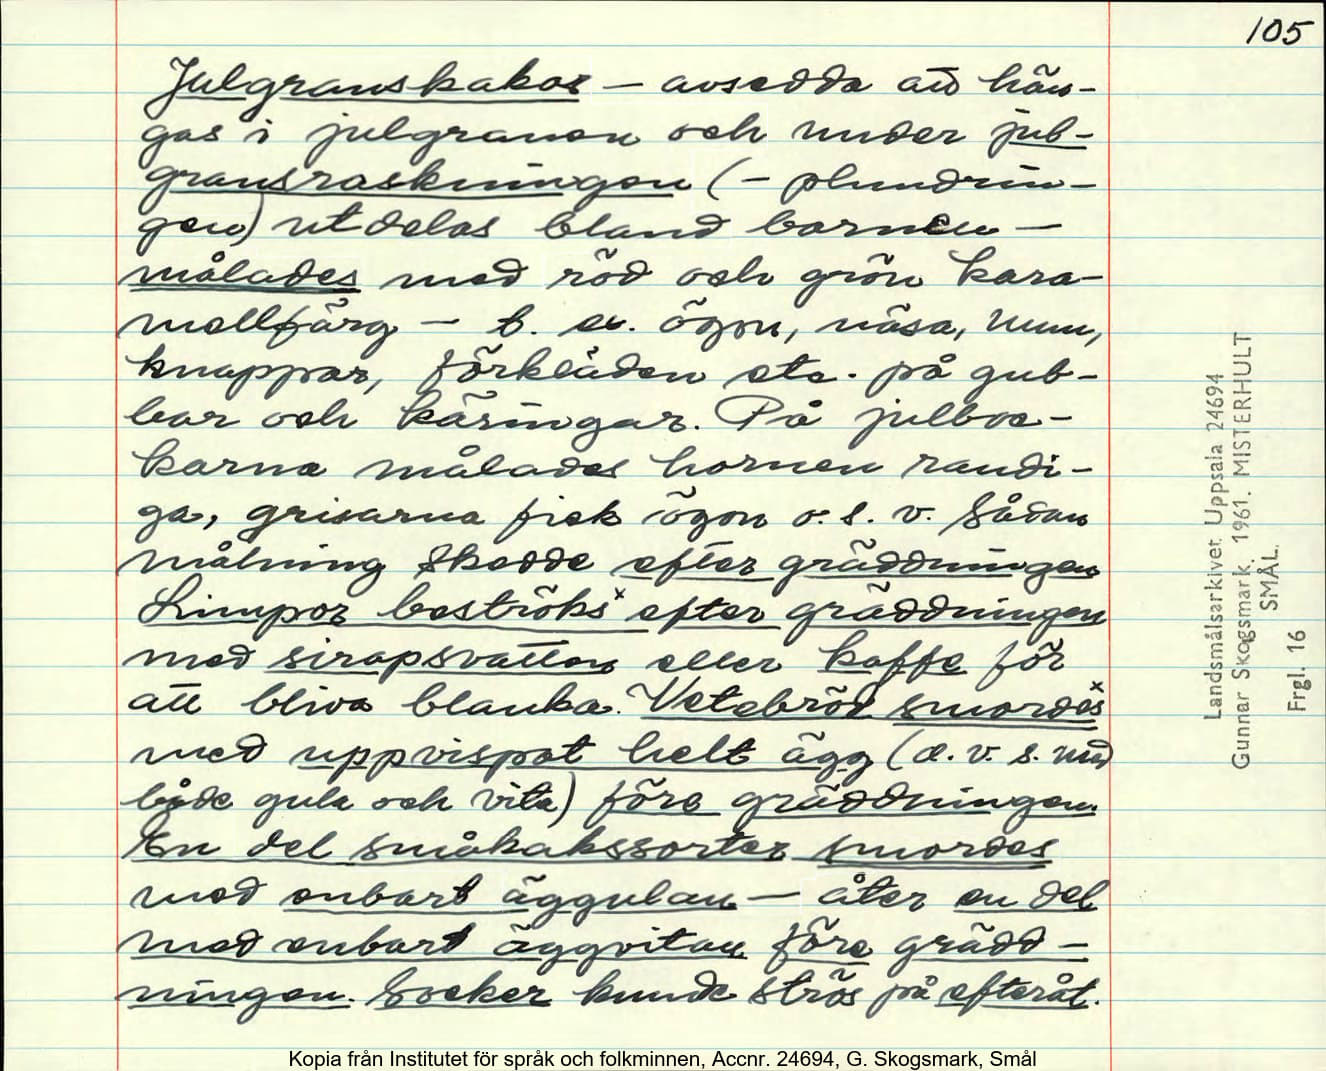 105
Julgranskakor – avsedda att hän-
gas i julgranen och under jul-
gransraskningen (– plundrin-
gen) utdelas bland barnen –
målades med röd och grön kara-
mellfärg – t. ex. ögon, näsa, mun,
knappar, förkläden etc. på gub-
bar och käringar. På julboc-
karna målades hornen randi-
ga, grisarna fick ögon o. s. v. Sådan
målning skedde efter gräddningen
Limpor beströks x efter gräddningen
med sirapsvatten eller kaffe för
att bliva blanka. Vetebröd smordes x
med uppvispat helt ägg (d. v. s. med
både gula och vita) före gräddningen.
En del småkakssorter smordes
med enbart äggulan – åter en del
med enbart äggvitan före grädd-
ningen. Socker kunde strös på efteråt.
Landsmålsarkivet Uppsala 24694
Gunnar Skogsmark. 1961. MISTERHULT
SMÅL.
Frgl. 16
Kopia från Institutet för språk och folkminnen, Accnr. 24694, G. Skogsmark, Smål